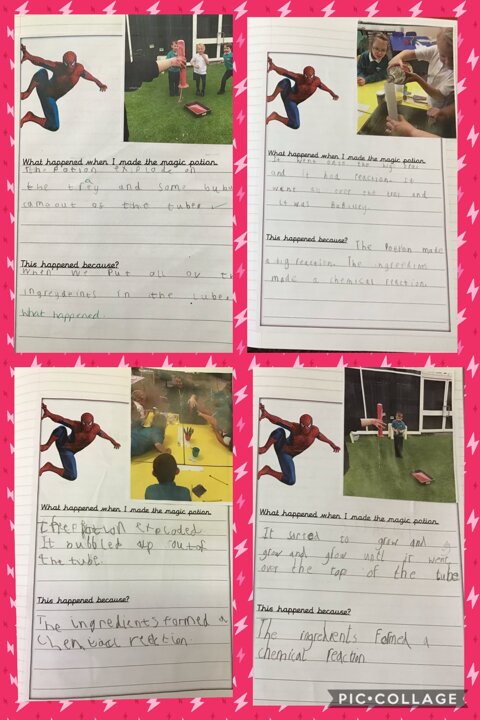 What happened when I made the magic potion.
The Potion explode on
the tray and some bubb
came out of the tube
This happened because?
When we Put all ov th
ingreydeints in the tube
What happened.
What happened when I made the magic potion.
It went onto the big tray
and it had reaction. It
went all over the tray and
it was
This happened because? The Potion made
a big reaction. The ingredins
made a chemical reaction.
What happened when I made the magic potion.
The potion exploded.
It bubbled up out of
the tube.
This happened because?
The ingredients formed a
chemical reaction
What happened when I made the magic potion.
It sarted to grow and g
grow and glow until it went
over the top of the tube
This happened because?
The ingredients formed a
chemical reaction
PIC•COLLAGE